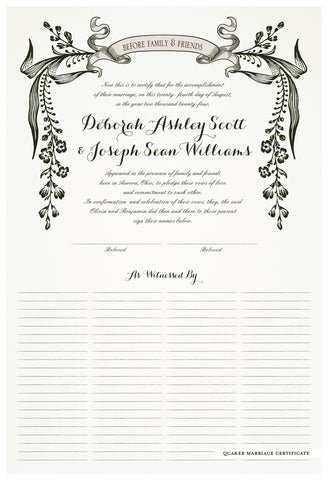 BEFORE FAMILY & FRIENDS
Now this is to certify that for the accomplishment
of their marriage, on this twenty-fourth day of August,
in the year two thousand twenty-four,
Deborah Ashley Scott
& Joseph Sean Williams
Appeared in the presence of family and friends
here in Aurora, Ohio, to pledge their vows of love
and commitment to each other.
In confirmation and celebration of their vows, they, the said
Olivia and Benjamin did then and there to these present
sign their names below.
Beloved Beloved
As Witnessed By
QUAKER MARRIAGE CERTIFICATE